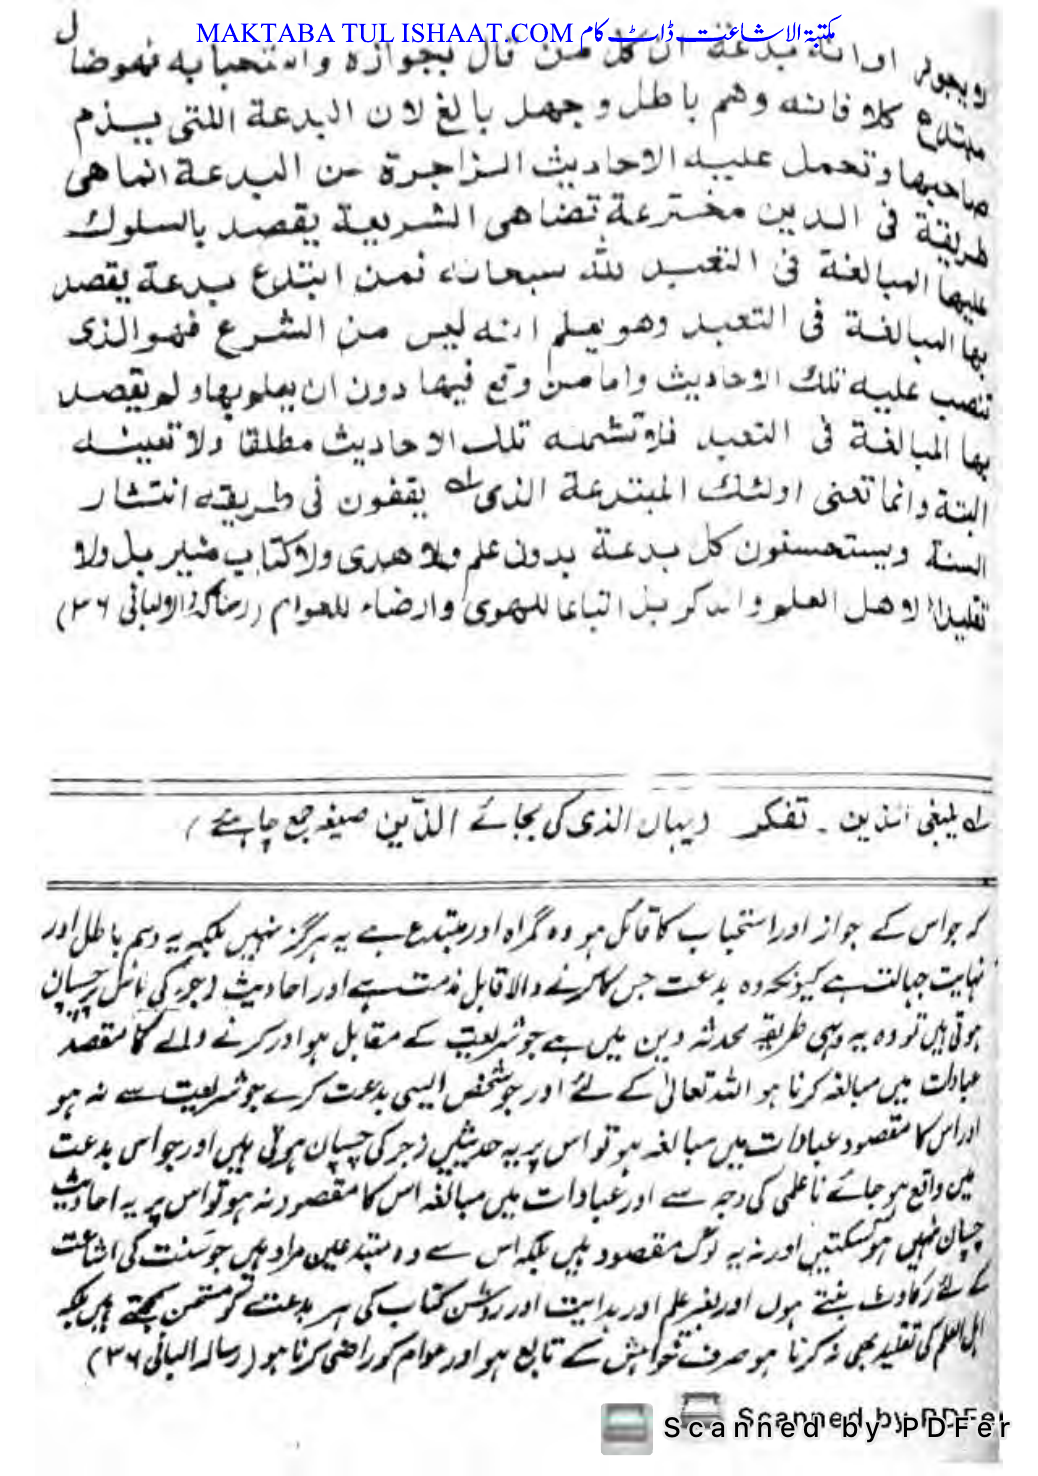 MAKTABA TUL ISHAAT.COM مکتبۃ الاشاعت ڈاٹ کام
لا یجوز او انه بدعة ان كل من قال بجوازه واستحبابه فهو ضال
مبتدع كلا فانه وهم باطل وجهل بالغ لان البدعة اللتی یذم
صاحبها وتحمل علیه الاحادیث الزاجرة عن البدعة انما هی
طریقة فی الدین مخترعة تضاهی الشریعة یقصد بالسلوك
علیها المبالغة فی التعبد لله سبحانه فمن ابتدع بدعة یقصد
بها المبالغة فی التعبد وهو یعلم انه لیس من الشرع فهو الذی
تنصب علیه تلك الاحادیث واما من وقع فیها دون ان یعلم بها ولم یقصد
بها المبالغة فی التعبد فلا تشمله تلك الاحادیث مطلقا ولا تعینه
البتة وانما تعنی اولئك المبتدعة الذی یقفون فی طریقه انتشار
السنة ویستحسنون كل بدعة بدون علم ولا هدی ولا كتاب منیر بل ولا
تقلیدا لاهل العلم والذكر بل اتباعا للهوی وارضاء للعوام (رسالۃ الالبانی ۳۶)
لے ینبغی الذین ۔ تفکر (یہاں الذی کی بجائے الذّین صیغہ جمع چاہئے)
کہ جو اس کے جواز اور استحباب کا قائل ہو وہ گمراہ اور مبتدع ہے یہ ہرگز نہیں بلکہ یہ وہم باطل اور
نہایت جہالت ہے کیونکہ وہ بدعت جس کا کرنے والا قابل مذمت ہے اور احادیث زجر کی اس پر چسپان
ہوتی ہیں تو وہ یہ وہی طریقہ محدثہ دین میں ہے جو شریعت کے مقابل ہو اور کرنے والے کا مقصد
عبادات میں مبالغہ کرنا ہو اللہ تعالیٰ کے لئے اور جو شخص ایسی بدعت کرے جو شریعت سے نہ ہو
اور اس کا مقصود عبادات میں مبالغہ ہو تو اس پر یہ حدیثیں زجر کی چسپان ہوتی ہیں اور جو اس بدعت
میں واقع ہو جائے ناعلمی کی وجہ سے اور عبادات میں مبالغہ اس کا مقصود نہ ہو تو اس پر یہ احادیث
چسپان نہیں ہو سکتیں اور نہ یہ لوگ مقصود ہیں بلکہ اس سے وہ مبتدعین مراد ہیں جو سنت کی اشاعت
کے لئے رکاوٹ بنتے ہوں اور بغیر علم اور ہدایت اور روشن کتاب کی ہر بدعت کو مستحسن کہتے ہیں بلکہ
اہل العلم کی تقلید بھی نہ کرنا ہو صرف خواہش کے تابع ہو اور عوام کو راضی کرنا ہو (رسالہ البانی ۳۶)
Scanned by PDFer
Scanned by PDFer